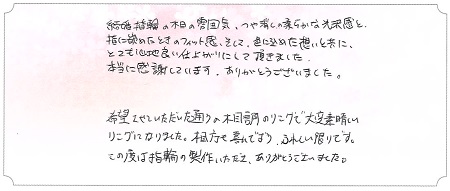 結婚指輪の木目の雰囲気、つや消しの柔らかな光沢感と、
指に嵌めたときのフィット感、そして、色に込めた想いと共に、
とても心地良い仕上がりにして頂きました。
本当に感謝しています。ありがとうございました。
希望させていただいた通りの木目調のリングで大変素晴しい
リングになりました。相方も喜んでおり、うれしい限りです。
この度は指輪の製作いただき、ありがとうございました。